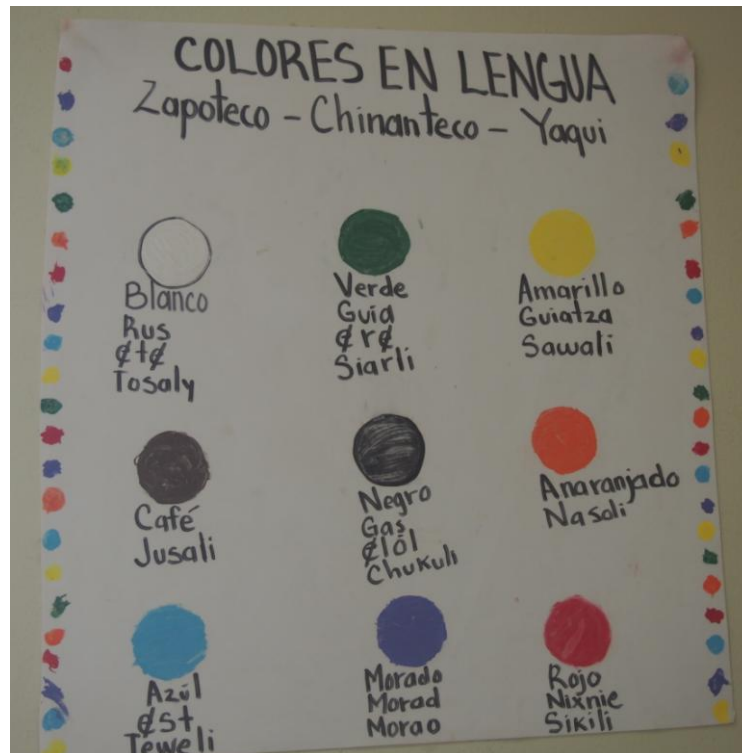 COLORES EN LENGUA
Zapoteco - Chinanteco - Yaqui
Blanco
Rus
¢t¢
Tosaly
Verde
Guia
¢r¢
Siarli
Amarillo
Guiatza
Sawali
Café
Jusali
Negro
Gas
¢löl
Chukuli
Anaranjado
Nasoli
Azúl
¢st
Teweli
Morado
Morad
Morao
Rojo
Nixnie
Sikili